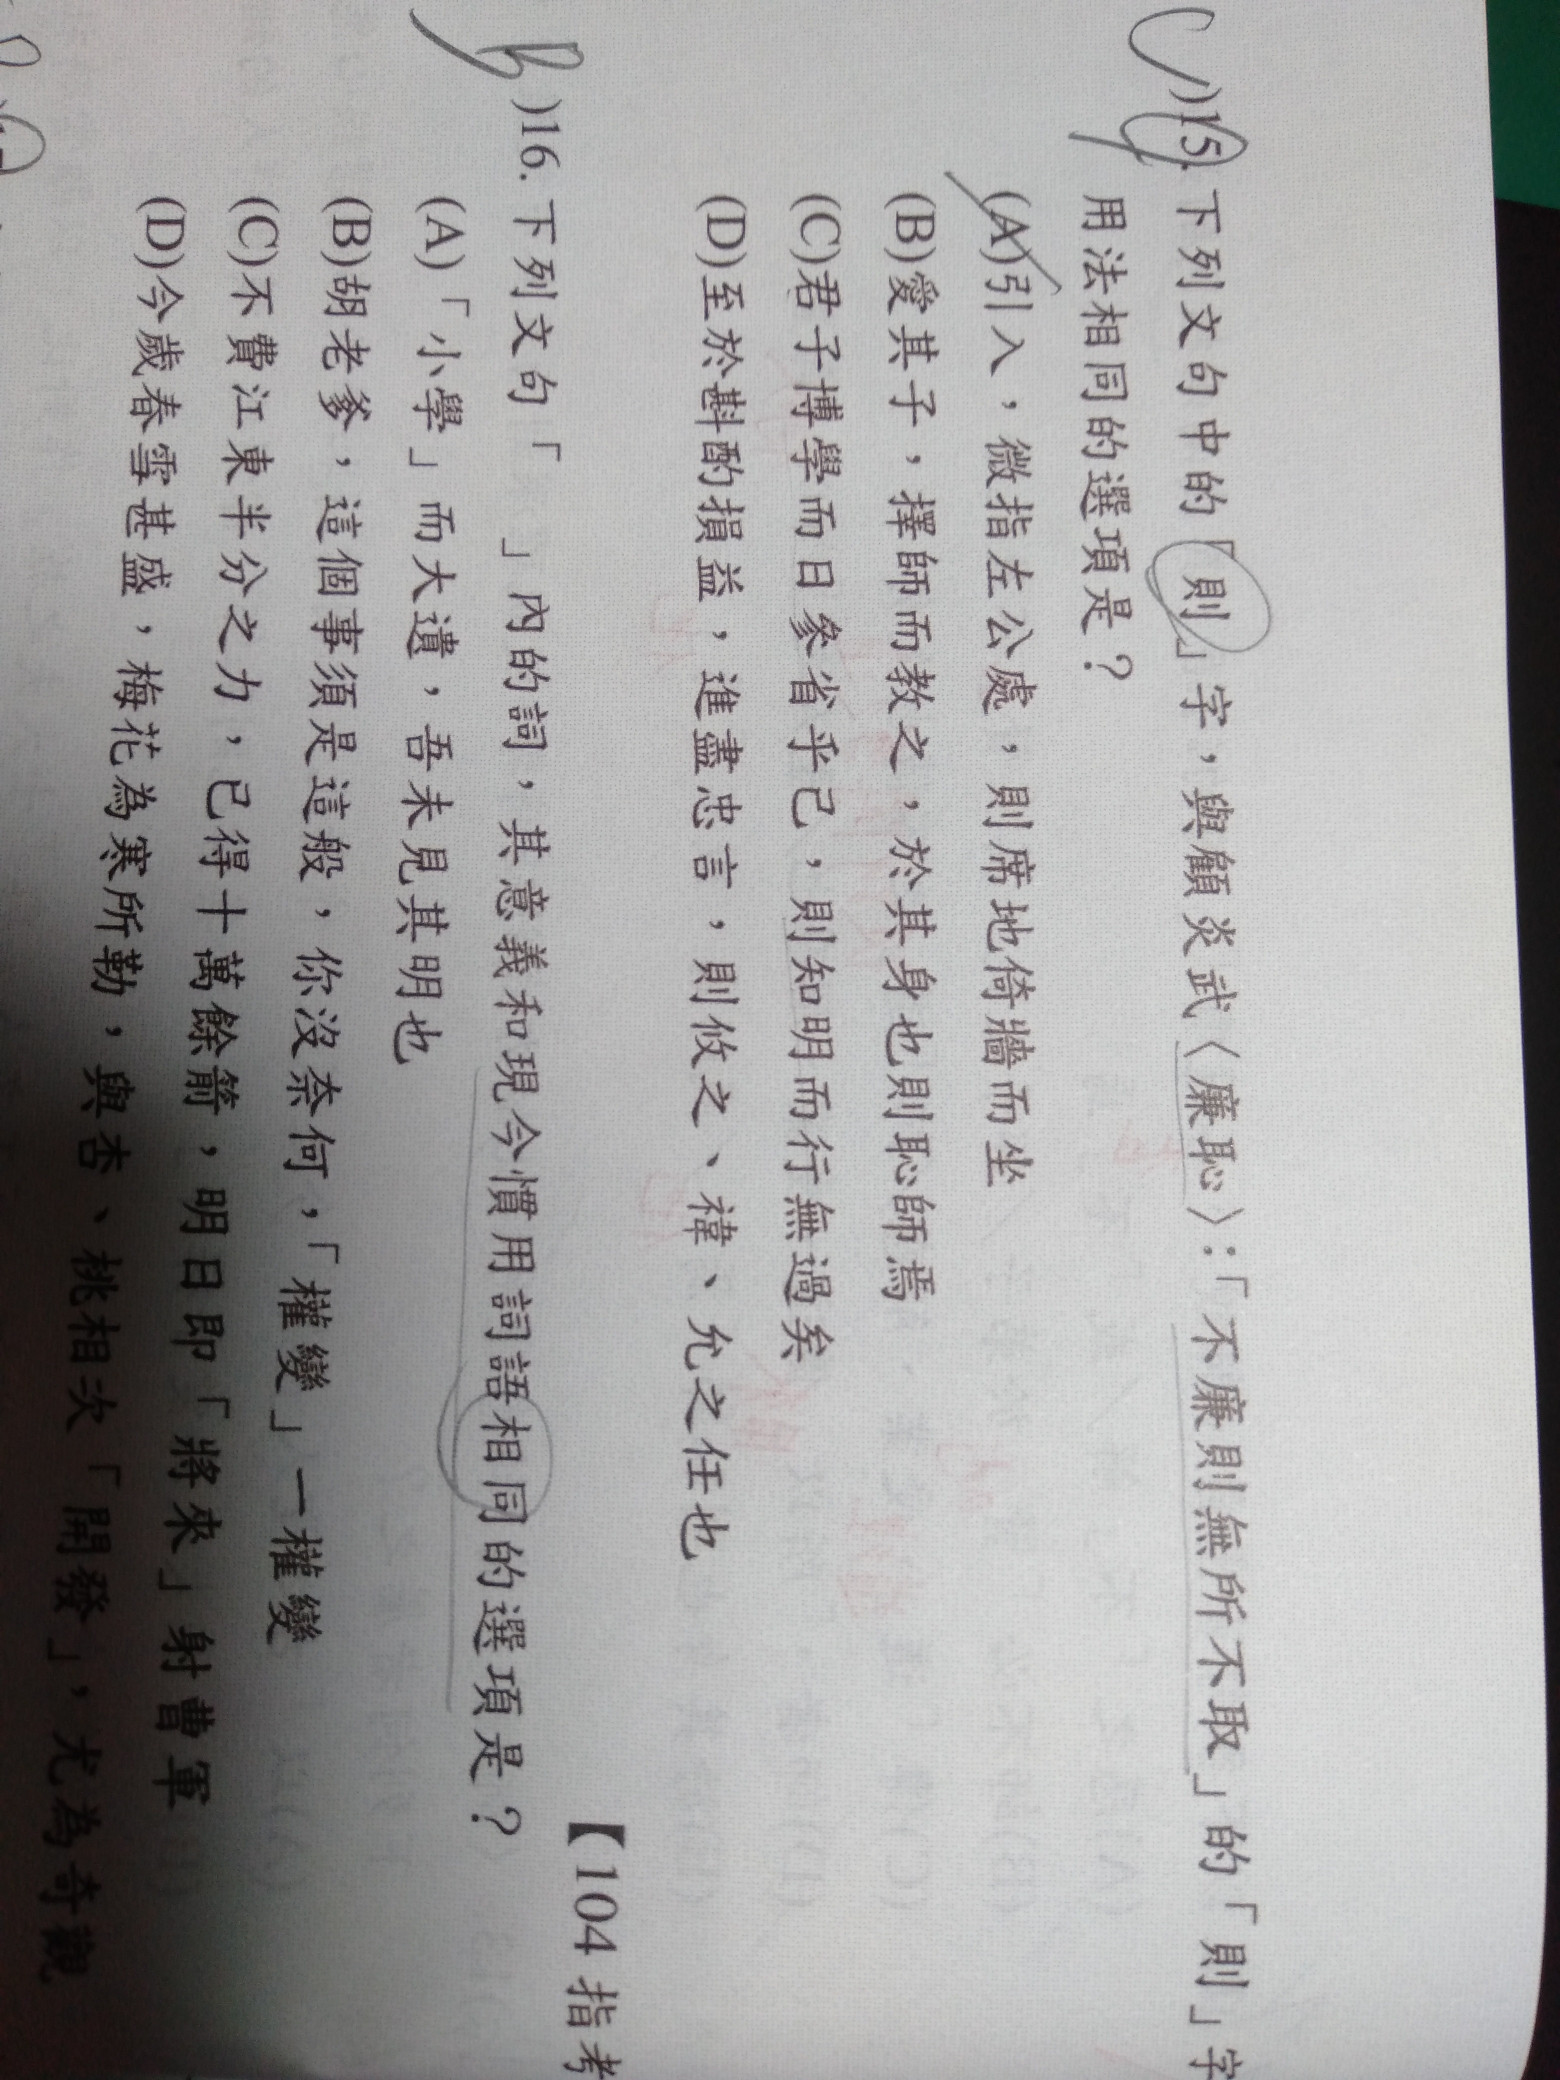 (C)15.下列文句中的「則」字，與顧炎武〈廉恥〉：「不廉則無所不取」的「則」字
用法相同的選項是？
(A)引入，微指左公處，則席地倚牆而坐
(B)愛其子，擇師而教之，於其身也則恥師焉
(C)君子博學而日參省乎己，則知明而行無過矣
(D)至於斟酌損益，進盡忠言，則攸之、禕、允之任也
【104指考
B)16.下列文句「 」內的詞，其意義和現今慣用詞語相同的選項是？
(A)「小學」而大遺，吾未見其明也
(B)胡老爹，這個事須是這般，你沒奈何，「權變」一權變
(C)不費江東半分之力，已得十萬餘箭，明日即「將來」射曹軍
(D)今歲春雪甚盛，梅花為寒所勒，與杏、桃相次「開發」，尤為奇觀